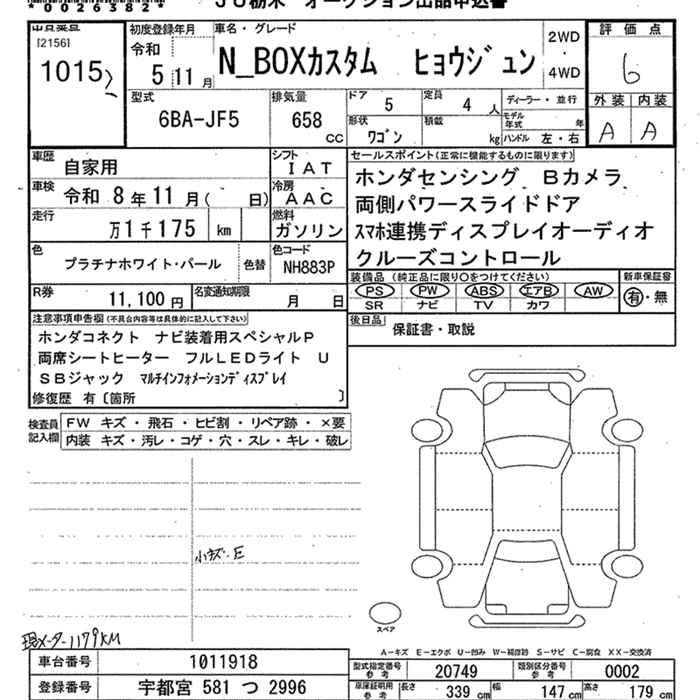 *0026382*
JU栃木 オークション出品申込書
出品票
[2156]
1015
初度登録年月
令和
5 11 月
車名・グレード
N_BOXカスタム ヒョウジュン
2WD
・
4WD
評価点
6
型式
6BA-JF5
排気量
658
CC
ドア 5
定員 4 人
形状
ワゴン
積載
kg
ディーラー・並行
モデル年式 年
ハンドル 左・右
外装 内装
A A
車歴
自家用
シフト
IAT
車検
令和 8 年 11 月( 日)
冷房
AAC
走行
万 1 千 175 km
燃料
ガソリン
色
プラチナホワイト・パール
色替
色コード
NH883P
R券
11,100 円
名変通知期限
月 日
セールスポイント(正常に機能するものに限ります)
ホンダセンシング Bカメラ
両側パワースライドドア
スマホ連携ディスプレイオーディオ
クルーズコントロール
装備品 (純正品に限り○をつけてください)
PS PW ABS エアB AW
SR ナビ TV カワ
新車保証書
有・無
後日品
保証書・取説
注意事項申告欄(不具合内容等は具体的に記入して下さい)
ホンダコネクト ナビ装着用スペシャルP
両席シートヒーター フルLEDライト U
SBジャック マルチインフォメーションディスプレイ
修復歴 有〔箇所 〕
検査員
記入欄
FW キズ・飛石・ヒビ割・リペア跡・×要
内装 キズ・汚レ・コゲ・穴・スレ・キレ・破レ
小キズ.E
現メーター1179KM
スペア
A-キズ E-エクボ U-凹み W-補修跡 S-サビ C-腐食 XX-交換済
車台番号
1011918
登録番号
宇都宮 581 つ 2996
型式指定番号
参考
20749
類別区分番号
参考
0002
車庫証明用
参考
長さ 339 cm
幅 147 cm
高さ 179 cm